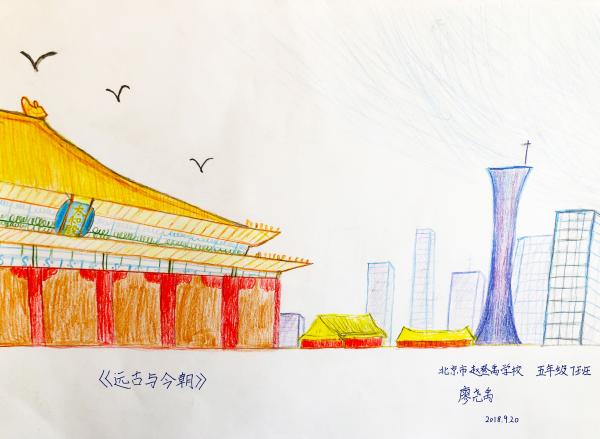 《远古与今朝》
北京市赵登禹学校 五年级7班
廖尧禹
2018.9.20